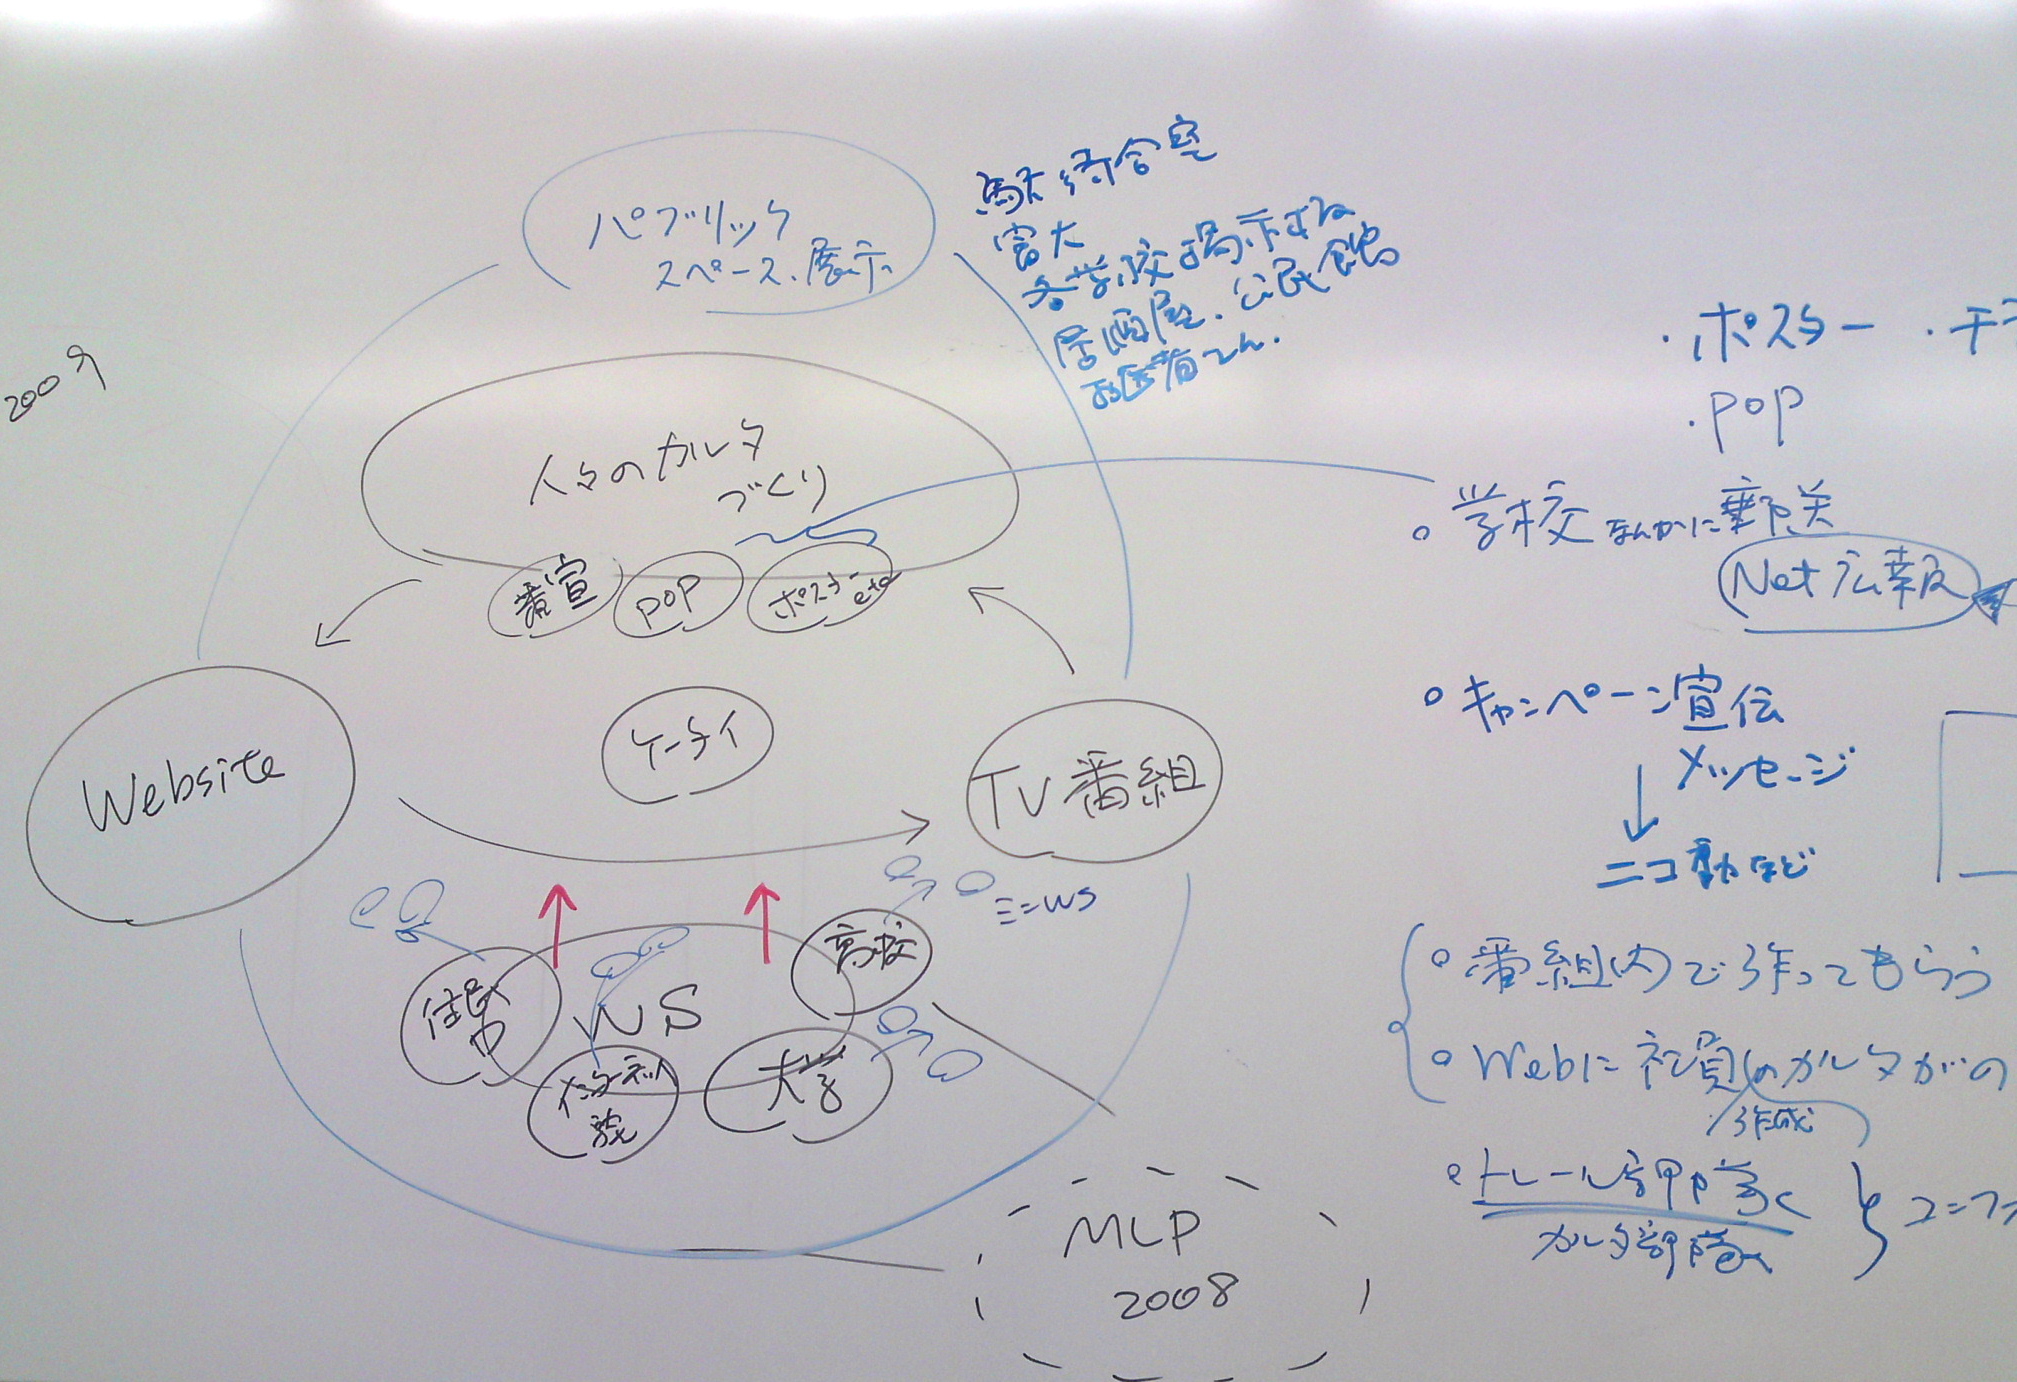 2009
パブリック
スペース、展示
駅待合室
富大
各学校掲示板
居酒屋、公民館
お医者さん.
人々のカルタ
づくり
番宣
POP
ポスター
etc
Website
ケータイ
TV番組
ミニWS
高校
住民
WS
インターネット
大学
MLP
2008
・ポスター ・チラ
・POP
○学校なんかに郵送
Net広報
○キャンペーン宣伝
メッセージ
ニコ動など
○番組内で作ってもらう
○Webに社員のカルタがの
作成
○トレール部隊
カルタ部隊